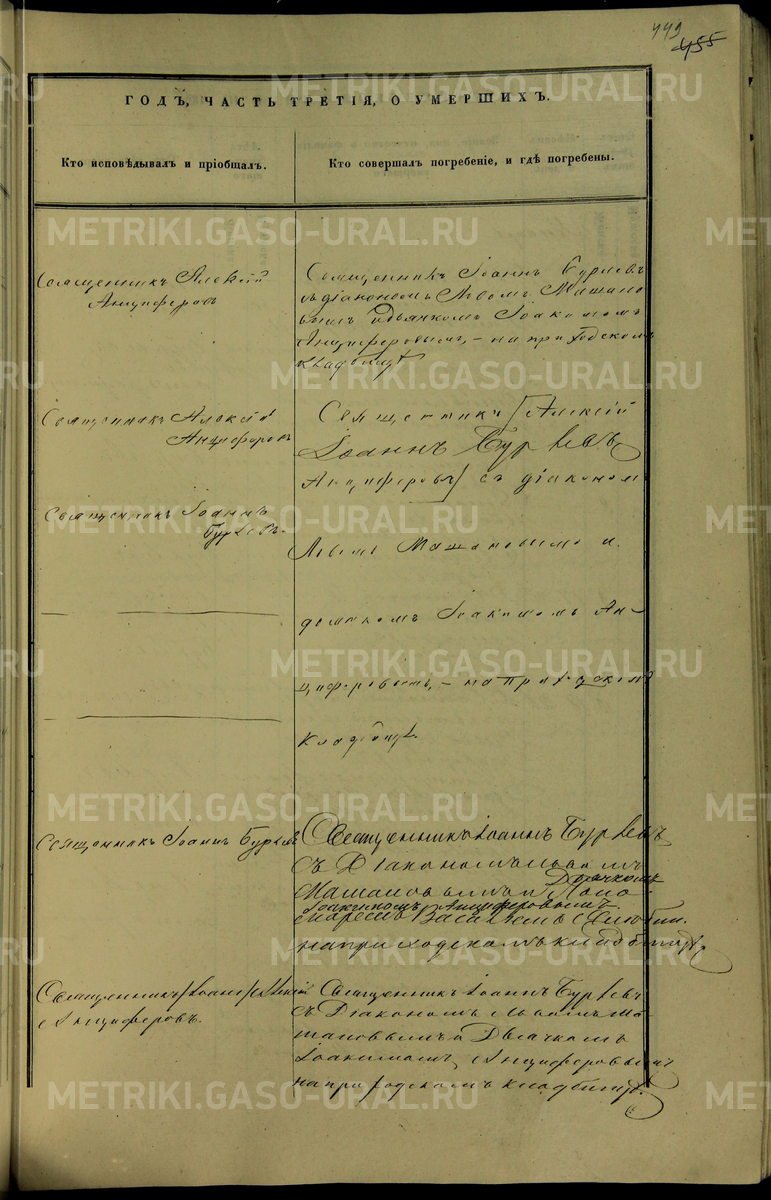 449
455
ГОДЪ, ЧАСТЬ ТРЕТІЯ, О УМЕРШИХЪ.
Кто исповѣдывалъ и пріобщалъ.
Кто совершалъ погребеніе, и гдѣ погребены.
Священникъ Алексій
Анциферовъ
Священникъ Іоаннъ Бурлевъ
съ діакономъ Львомъ Машано
вымъ и дьячкомъ Іоакимомъ
Анциферовымъ, – на приходскомъ
кладбищѣ
Священникъ Алексій
Анциферовъ
Священникъ [Алексій
Іоаннъ Бурлевъ
Анциферовъ] съ діакономъ
Священникъ Іоаннъ
Бурлевъ.
Львомъ Машановымъ и
дьячкомъ Іоакимомъ Ан-
циферовымъ, – на приходскомъ
кладбищѣ.
Священникъ Іоаннъ Бурлевъ
Священникъ Іоаннъ Бурлевъ
съ Діакономъ Львомъ
Дьячкомъ
Машановымъ и Поно
Іоакимомъ Анциферовымъ
маремъ Васильемъ
на приходскомъ кладбищѣ.
Священникъ [Іоаннъ] Алексій
Анциферовъ.
Священникъ Іоаннъ Бурлевъ
съ Діакономъ Львомъ Ма
шановымъ и Дьячкомъ
Іоакимомъ Анциферовымъ
на приходскомъ кладбищѣ.
METRIKI.GASO-URAL.RU